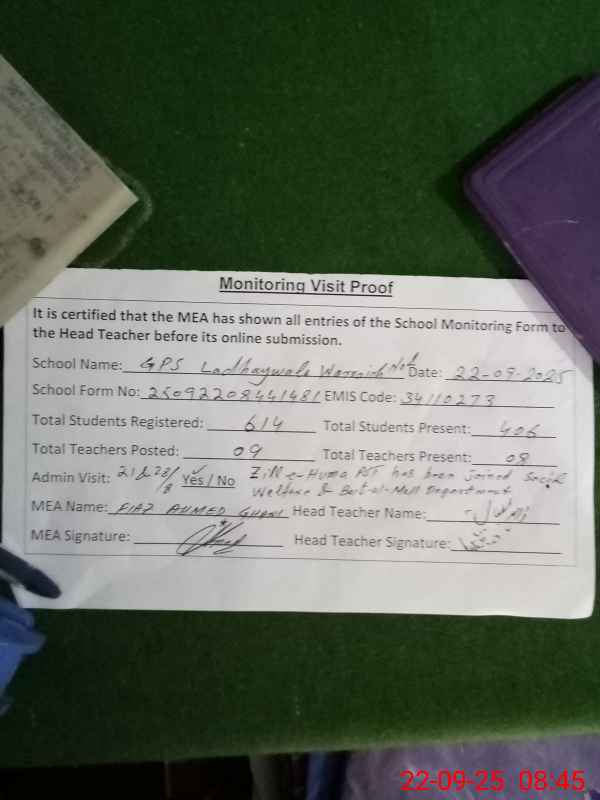 Monitoring Visit Proof
It is certified that the MEA has shown all entries of the School Monitoring Form to
the Head Teacher before its online submission.
School Name: GPS Ladhaywala Warraich No1 Date: 22-09-2025
School Form No: 25092208441481 EMIS Code: 34110273
Total Students Registered: 614 Total Students Present: 406
Total Teachers Posted: 09 Total Teachers Present: 08
Admin Visit: 21 & 28/8 Yes / No Zill-e-Huma PST has been joined Social
Welfare & Bait-ul-Mall Department
MEA Name: FIAZ AHMED GHANI Head Teacher Name:
MEA Signature: Head Teacher Signature:
22-09-25 08:45